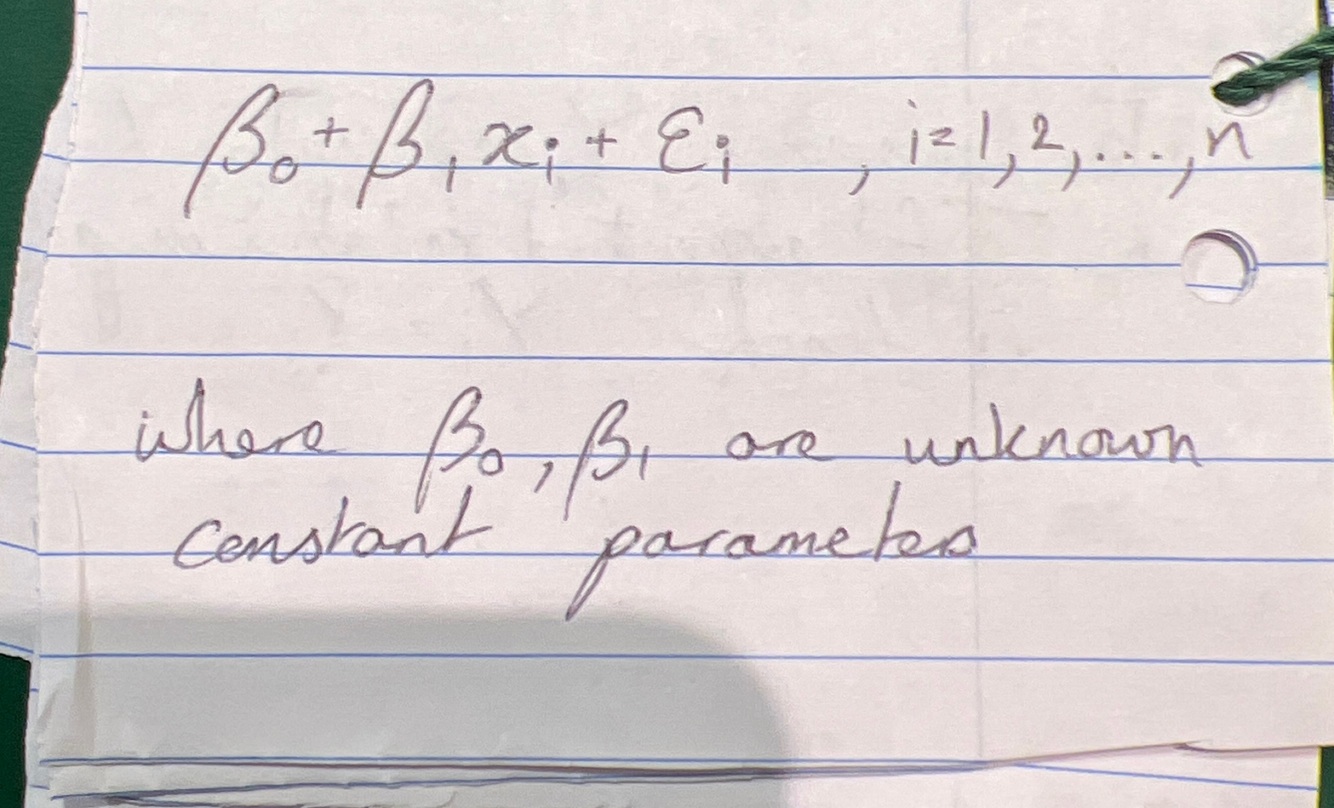 β₀ + β₁ xᵢ + εᵢ , i=1,2,...,n
where β₀, β₁ are unknown
constant parameters